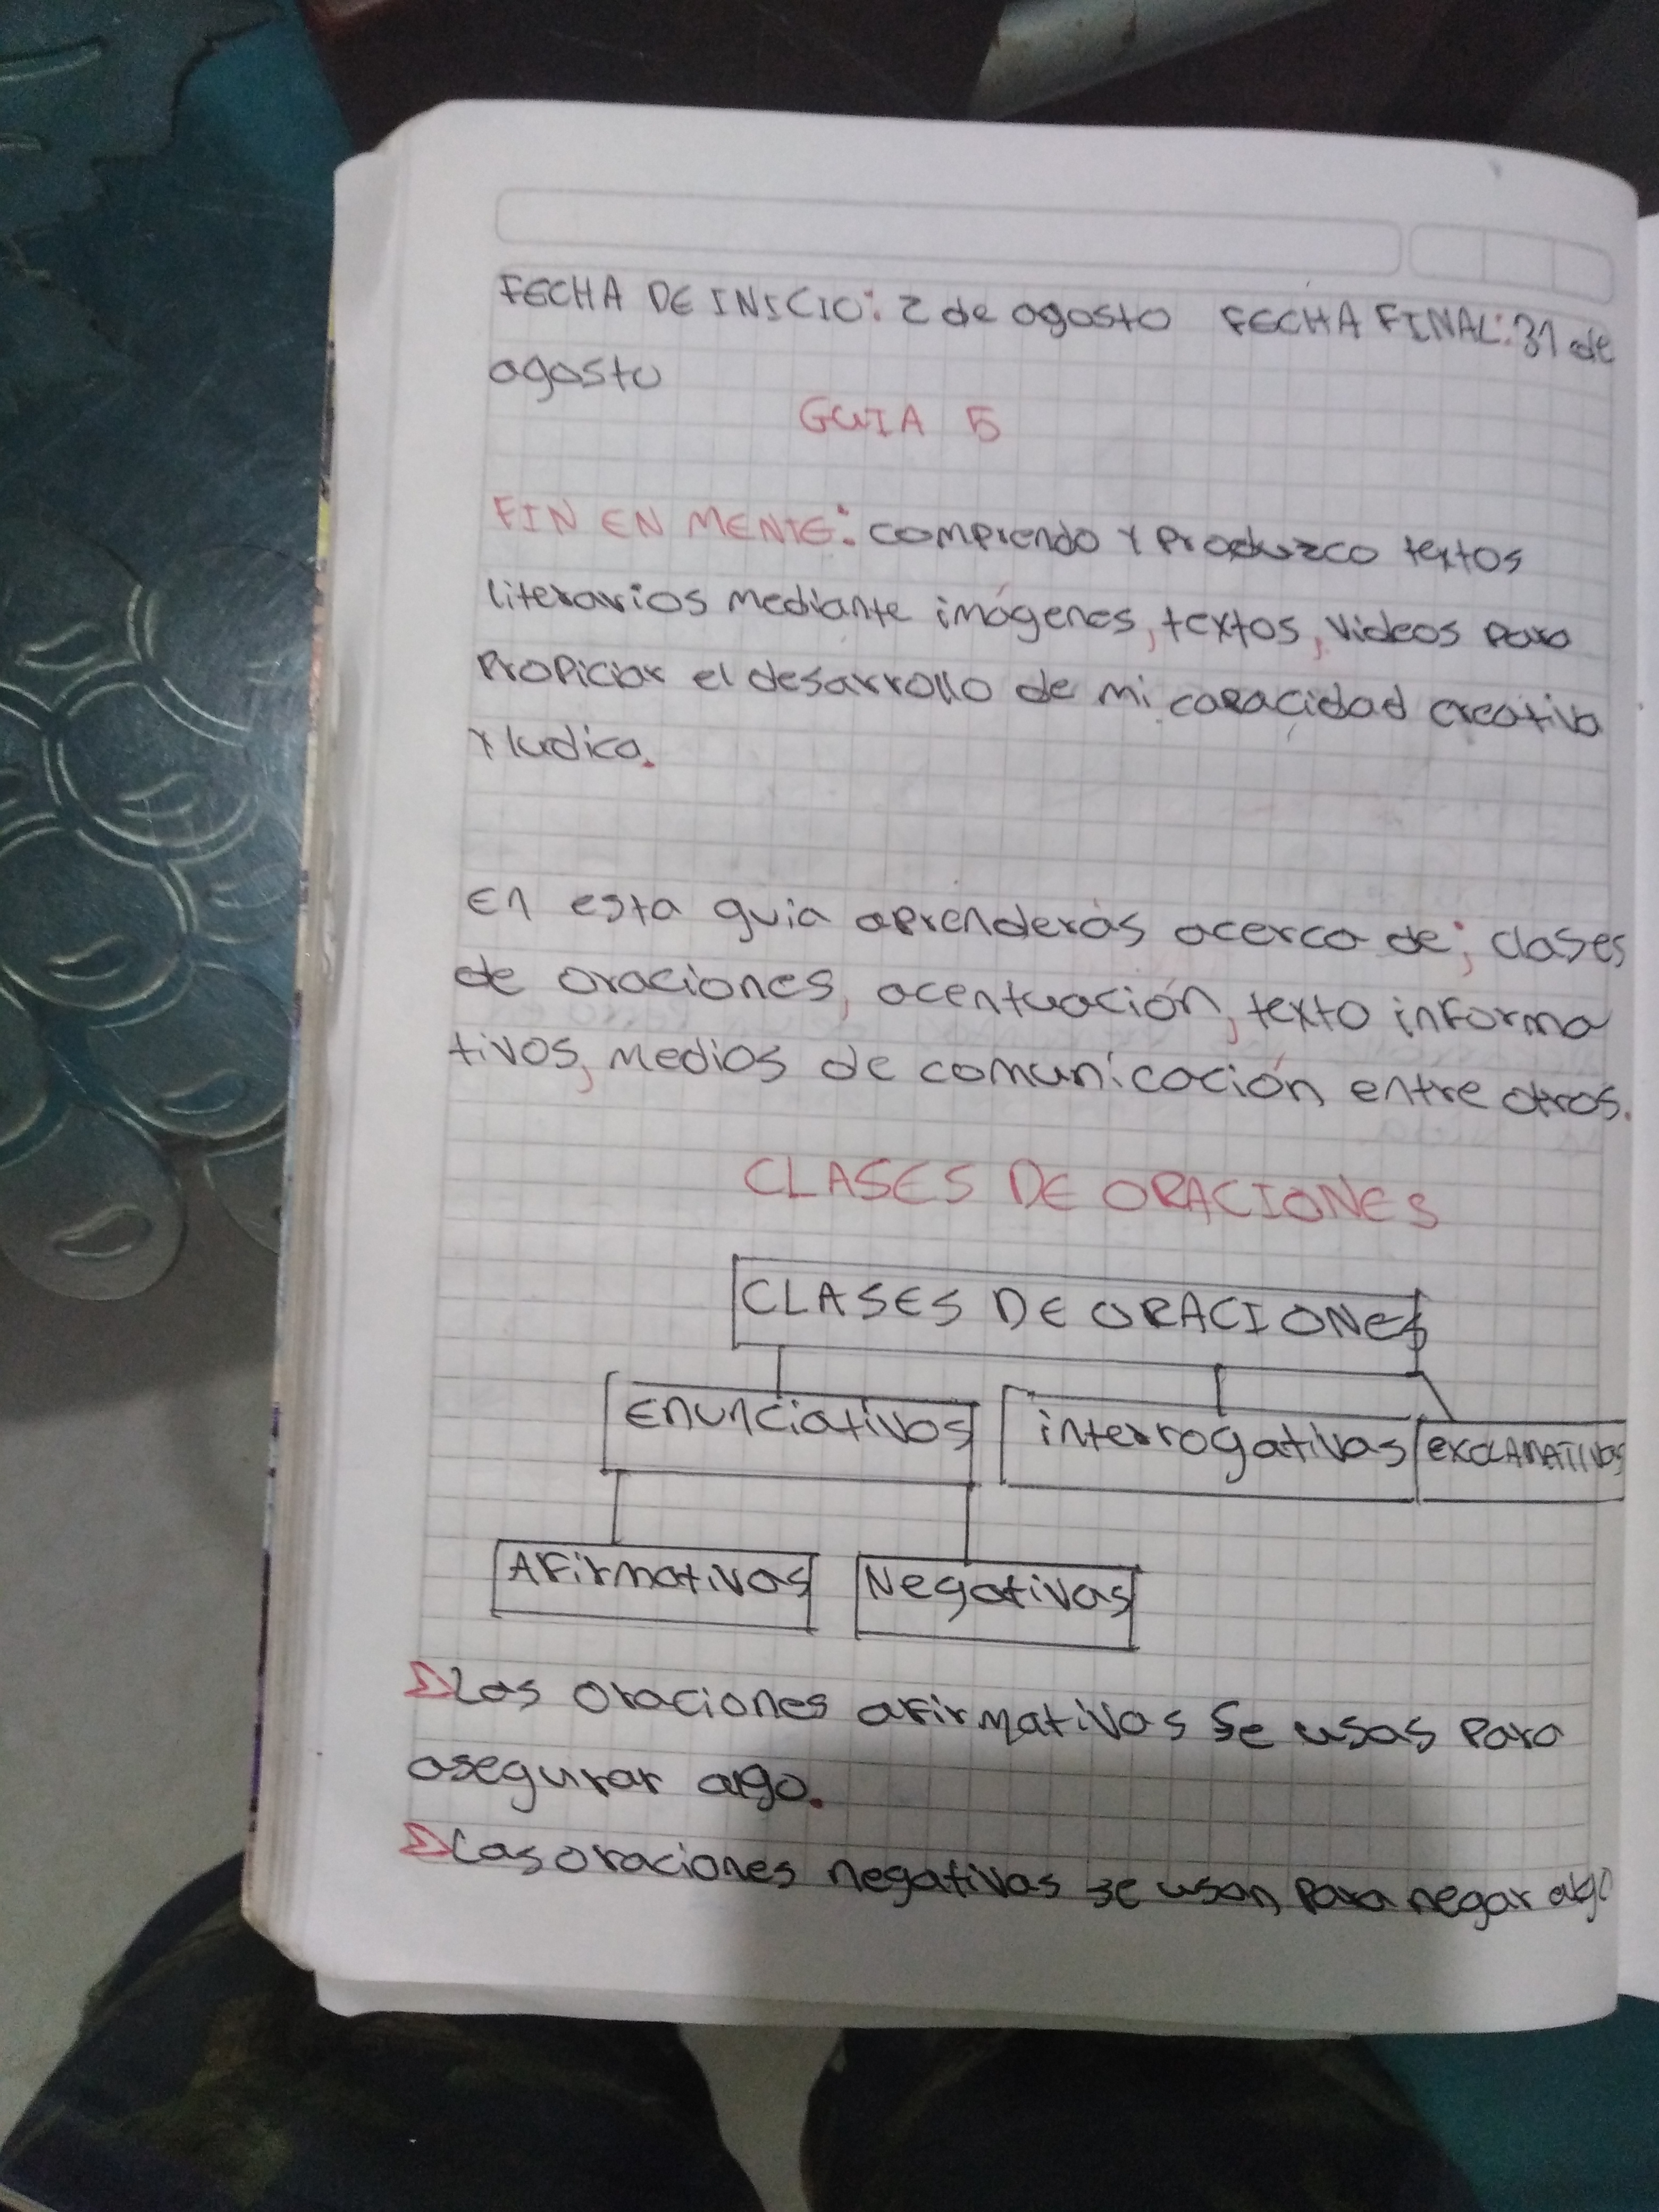 FECHA DE INICIO: 2 de agosto FECHA FINAL: 31 de
agosto
GUIA 5
FIN EN MENTE: comprendo y Produzco textos
literarios mediante imágenes, textos, videos para
Propiciar el desarrollo de mi capacidad creativa
y ludica.
En esta guia aprenderás acerca de; clases
de oraciones, acentuación, texto informa
tivos, medios de comunicación, entre otros.
CLASES DE ORACIONES
CLASES DE ORACIONES
Enunciativas interrogativas exclAMATIVAS
Afirmativas Negativas
Las oraciones afirmativas Se usas Para
asegurar algo.
Las oraciones negativas se usan, para negar algo